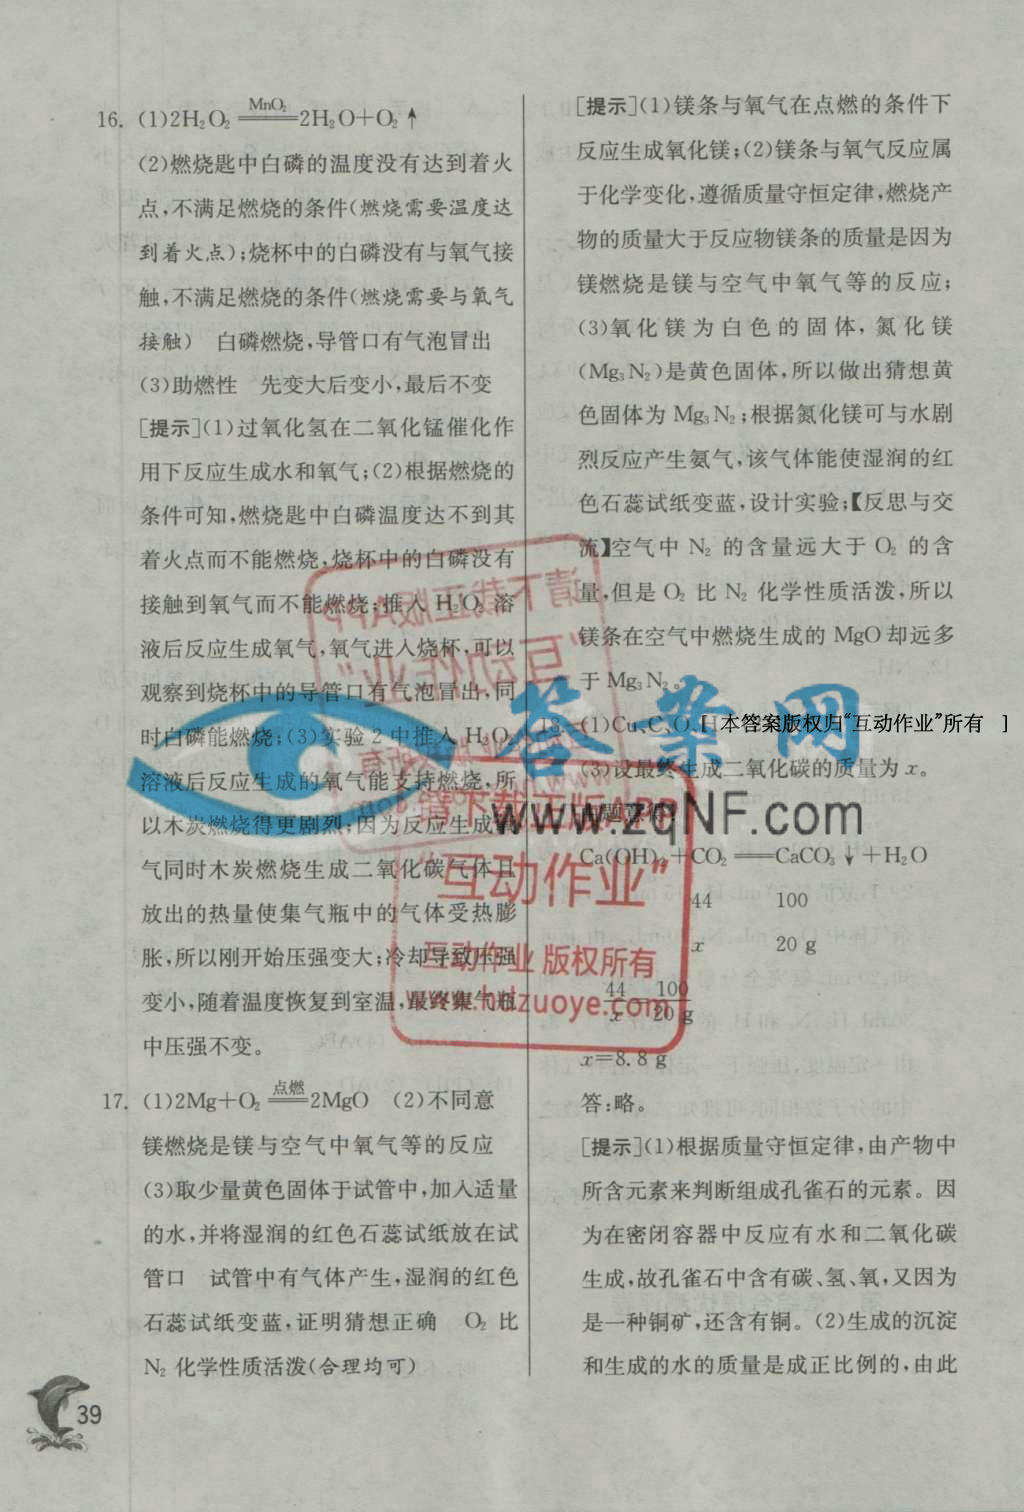 16. (1)2H₂O₂ ══MnO₂══ 2H₂O+O₂↑
(2)燃烧匙中白磷的温度没有达到着火
点,不满足燃烧的条件(燃烧需要温度达
到着火点);烧杯中的白磷没有与氧气接
触,不满足燃烧的条件(燃烧需要与氧气
接触) 白磷燃烧,导管口有气泡冒出
(3)助燃性 先变大后变小,最后不变
[提示](1)过氧化氢在二氧化锰催化作
用下反应生成水和氧气;(2)根据燃烧的
条件可知,燃烧匙中白磷温度达不到其
着火点而不能燃烧,烧杯中的白磷没有
接触到氧气而不能燃烧;推入 H₂O₂ 溶
液后反应生成氧气,氧气进入烧杯,可以
观察到烧杯中的导管口有气泡冒出,同
时白磷能燃烧;(3)实验2中推入 H₂O₂
溶液后反应生成的氧气能支持燃烧,所
以木炭燃烧得更剧烈;因为反应生成氧
气同时木炭燃烧生成二氧化碳气体且
放出的热量使集气瓶中的气体受热膨
胀,所以刚开始压强变大;冷却导致压强
变小,随着温度恢复到室温,最终集气瓶
中压强不变。
17. (1)2Mg+O₂ ══点燃══ 2MgO (2)不同意
镁燃烧是镁与空气中氧气等的反应
(3)取少量黄色固体于试管中,加入适量
的水,并将湿润的红色石蕊试纸放在试
管口 试管中有气体产生,湿润的红色
石蕊试纸变蓝,证明猜想正确 O₂ 比
N₂ 化学性质活泼(合理均可)
39
[提示](1)镁条与氧气在点燃的条件下
反应生成氧化镁;(2)镁条与氧气反应属
于化学变化,遵循质量守恒定律,燃烧产
物的质量大于反应物镁条的质量是因为
镁燃烧是镁与空气中氧气等的反应;
(3)氧化镁为白色的固体,氮化镁
(Mg₃N₂)是黄色固体,所以做出猜想黄
色固体为 Mg₃N₂;根据氮化镁可与水剧
烈反应产生氨气,该气体能使湿润的红
色石蕊试纸变蓝,设计实验;【反思与交
流】空气中 N₂ 的含量远大于 O₂ 的含
量,但是 O₂ 比 N₂ 化学性质活泼,所以
镁条在空气中燃烧生成的 MgO 却远多
于 Mg₃N₂。
18. (1)Cu、C、O、H 本答案版权归“互动作业”所有 ]
(3)设最终生成二氧化碳的质量为 x。
题意得:
Ca(OH)₂+CO₂══CaCO₃↓+H₂O
44 100
x 20 g
44/x=100/20 g
x=8.8 g
答:略。
[提示](1)根据质量守恒定律,由产物中
所含元素来判断组成孔雀石的元素。因
为在密闭容器中反应有水和二氧化碳
生成,故孔雀石中含有碳、氢、氧,又因为
是一种铜矿,还含有铜。(2)生成的沉淀
和生成的水的质量是成正比例的,由此
答案网
www.zqNF.com
请下载正版APP
“互动作业”
请下载正版APP
“互动作业”
互动作业 版权所有
www.hdzuoye.com